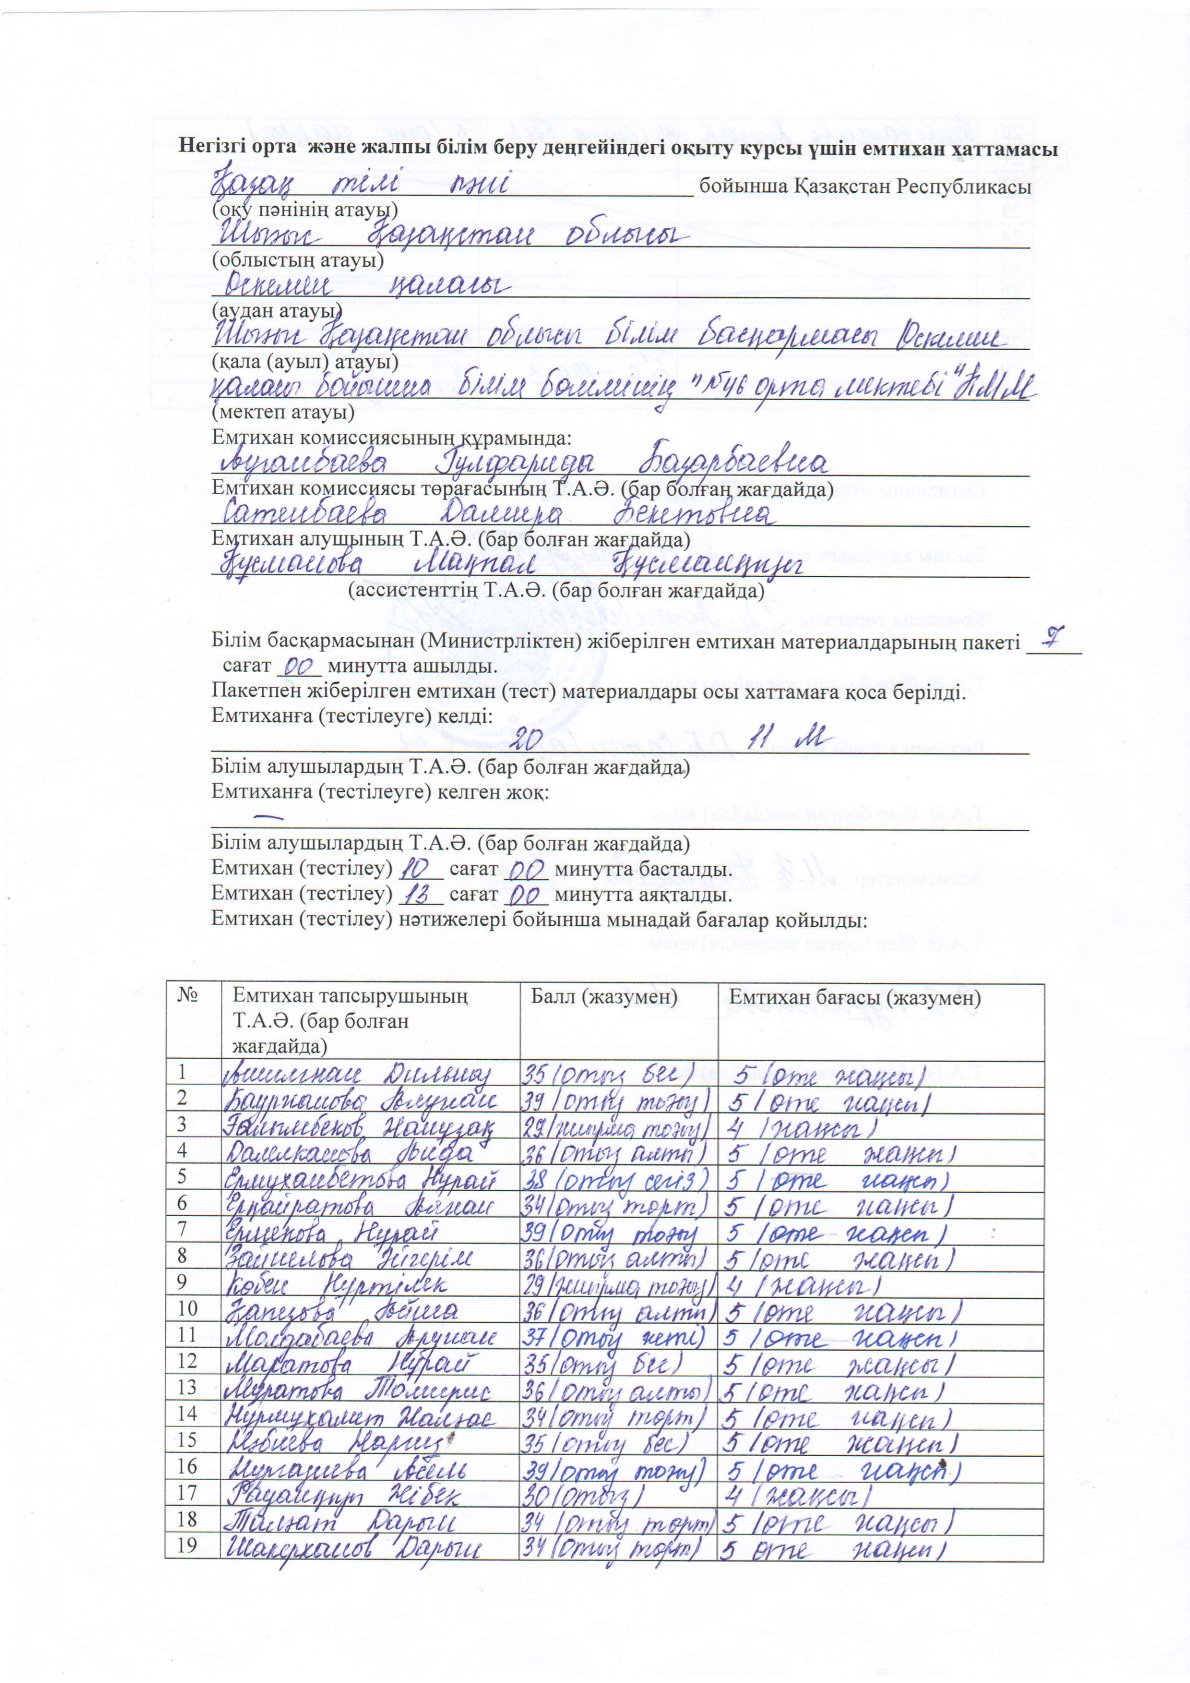 Негізгі орта және жалпы білім беру деңгейіндегі оқыту курсы үшін емтихан хаттамасы
Қазақ тілі пәні бойынша Қазақстан Республикасы
(оқу пәнінің атауы)
Шығыс Қазақстан облысы
(облыстың атауы)
Өскемен қаласы
(аудан атауы)
Шығыс Қазақстан облысы білім басқармасы Өскемен
(қала (ауыл) атауы)
қаласы бойынша білім бөлімінің "№46 орта мектебі" КММ
(мектеп атауы)
Емтихан комиссиясының құрамында:
Ауганбаева Гулфарида Базарбаевна
Емтихан комиссиясы төрағасының Т.А.Ә. (бар болған жағдайда)
Сатенбаева Дамира Бекетовна
Емтихан алушының Т.А.Ә. (бар болған жағдайда)
Құсманова Мақпал Құсманқызы
(ассистенттің Т.А.Ә. (бар болған жағдайда)
Білім басқармасынан (Министрліктен) жіберілген емтихан материалдарының пакеті 7
сағат 00 минутта ашылды.
Пакетпен жіберілген емтихан (тест) материалдары осы хаттамаға қоса берілді.
Емтиханға (тестілеуге) келді:
20 11 М
Білім алушылардың Т.А.Ә. (бар болған жағдайда)
Емтиханға (тестілеуге) келген жоқ:
—
Білім алушылардың Т.А.Ә. (бар болған жағдайда)
Емтихан (тестілеу) 10 сағат 00 минутта басталды.
Емтихан (тестілеу) 13 сағат 00 минутта аяқталды.
Емтихан (тестілеу) нәтижелері бойынша мынадай бағалар қойылды:
№ Емтихан тапсырушының Т.А.Ә. (бар болған жағдайда) Балл (жазумен) Емтихан бағасы (жазумен)
1 Дильназ 35 (отыз бес) 5 (өте жақсы)
2 Бауржанова Аяужан 39 (отыз тоғыз) 5 (өте жақсы)
3 Ғалымбеков 29 (жиырма тоғыз) 4 (жақсы)
4 Далелханова Аида 36 (отыз алты) 5 (өте жақсы)
5 Ермуханбетова Нұрай 38 (отыз сегіз) 5 (өте жақсы)
6 Ерқайратова Аяжан 34 (отыз төрт) 5 (өте жақсы)
7 Нұрай 39 (отыз тоғыз 5 (өте жақсы)
8 Зайнелова Әйгерім 36 (отыз алты) 5 (өте жақсы)
9 Көбен Нұртілек 29 (жиырма тоғыз) 4 (жақсы)
10 36 (отыз алты) 5 (өте жақсы)
11 Молдабаева Аружан 37 (отыз жеті) 5 (өте жақсы)
12 Маратова Нұрай 35 (отыз бес) 5 (өте жақсы)
13 Муратова Томирис 36 (отыз алты) 5 (өте жақсы)
14 Нұрмұхамит Жалғас 34 (отыз төрт) 5 (өте жақсы)
15 35 (отыз бес) 5 (өте жақсы)
16 Нургазиева Асель 39 (отыз тоғыз) 5 (өте жақсы)
17 Жібек 30 (отыз) 4 (жақсы)
18 Талғат Дарын 34 (отыз төрт) 5 (өте жақсы)
19 Шакерханов Дарын 34 (отыз төрт) 5 өте жақсы)